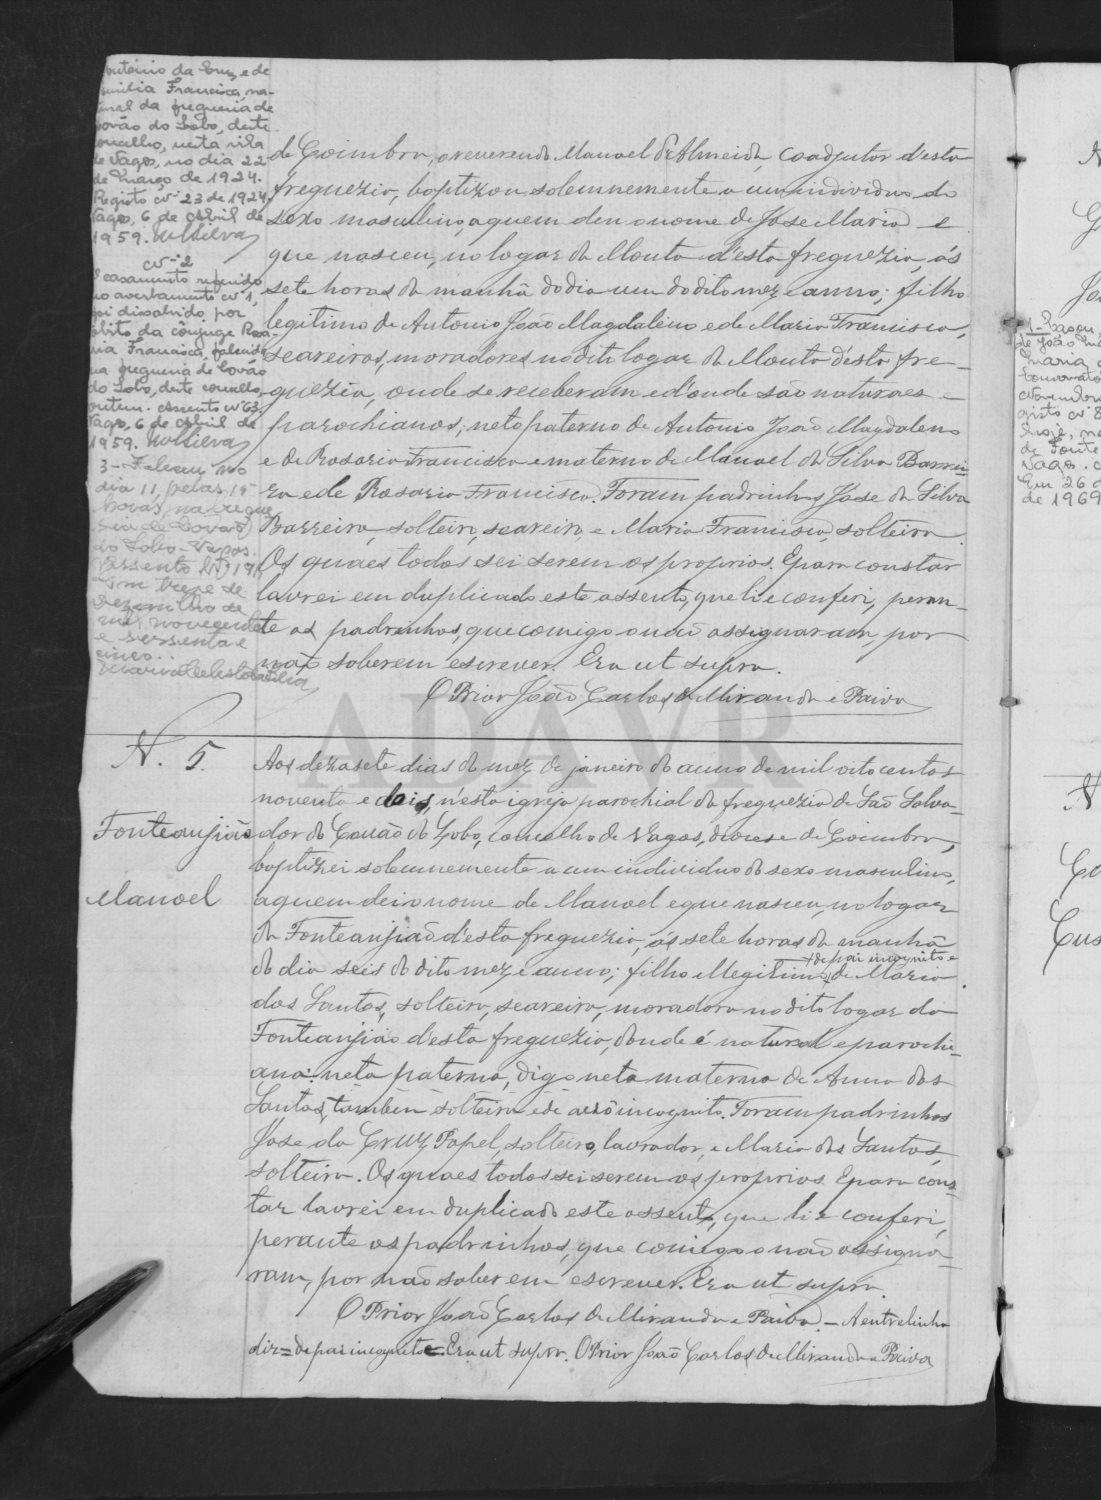 Antonio da Cruz e de
Emilia Francisca, na-
tural da freguesia de
Covão do Lobo, deste
concelho, nesta vila
de Vagos, no dia 22
de Março de 1924.
Registo nº 23 de 1924.
Vagos, 6 de Abril de
1959.
nº 2
O casamento referido
no averbamento nº 1,
foi dissolvido por
óbito da cônjuge Rosa-
ria Francisca, falecida
na freguesia de Covão
do Lobo, deste concelho,
ontem. Assento nº 63.
Vagos, 6 de Abril de
1959.
3 - Faleceu no
dia 11, pelas 15
horas, na fregue
sia de Covão
do Lobo - Vagos.
Assento Nº 191
Em treze de
Dezembro de
mil novecentos
e sessenta e
cinco.
de Coimbra, o reverendo Manoel d'Almeida, coadjutor d'esta
freguezia, baptizou solemnemente a um individuo do
sexo masculino, a quem deu o nome de José Maria e
que nasceu, no logar da Mouta d'esta freguezia, ás
sete horas da manhã do dia um do dito mez e anno; filho
legitimo de Antonio João Magdaleno e de Maria Francisca,
seareiros, moradores no dito logar da Mouta d'esta fre-
guezia, onde se receberam e d'onde são naturaes e
parochianos; neto paterno de Antonio João Magdaleno
e de Rosaria Francisca e materno de Manoel da Silva Barrei-
ra e de Rosaria Francisca. Foram padrinhos José da Silva
Barreira, solteiro, seareiro, e Maria Francisca, solteira.
Os quaes todos sei serem os proprios. E para constar
lavrei em duplicado este assento, que li e conferi, peran-
te os padrinhos, que comigo o não assignaram, por
não saberem escrever. Era ut supra.
O Prior João Carlos de Miranda e Paiva
ADAVR
N. 5.
Fonteanjião
Manoel
Aos dezasete dias do mez de janeiro do anno de mil oito centos
noventa e dois, n'esta igreja parochial da freguezia de São Salva-
dor do Covão do Lobo, concelho de Vagos, diocese de Coimbra,
baptizei solemnemente a um individuo do sexo masculino,
a quem dei o nome de Manoel e que nasceu, no logar
da Fonteanjião d'esta freguezia, ás sete horas da manhã
+ de pai incognito e
do dia seis do dito mez e anno; filho illegitimo + de Maria
dos Santos, solteira, seareira, moradora no dito logar da
Fonteanjião d'esta freguezia, donde é natural e parochi-
ana: neto paterno, digo neto materno de Anna dos
Santos, tambem solteira e de avô incognito. Foram padrinhos
José da Cruz Papel, solteiro, lavrador, e Maria dos Santos,
solteira. Os quaes todos sei serem os proprios. E para cons-
tar lavrei em duplicado este assento, que li e conferi,
perante os padrinhos, que comigo o não assigna-
ram, por não saberem escrever. Era ut supra.
O Prior João Carlos de Miranda e Paiva. - A entrelinha
diz = de pai incognito e = Era ut supra. O Prior João Carlos de Miranda e Paiva